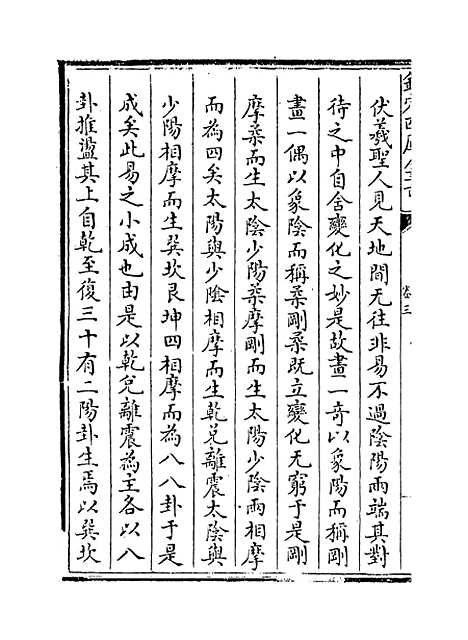 伏羲聖人見天地間无往非易不過陰陽兩端其對
待之中自舍變化之妙是故畫一奇以象陽而稱剛
畫一偶以象陰而稱柔剛柔既立變化无窮于是剛
摩柔而生太陰少陽柔摩剛而生太陽少陰兩相摩
而為四矣太陽與少陰相摩而生乾兌離震太陰與
少陽相摩而生巽坎艮坤四相摩而為八八卦于是
成矣此易之小成也由是以乾兌離震為主各以八
卦推盪其上自乾至復三十有二陽卦生焉以巽坎
卷三